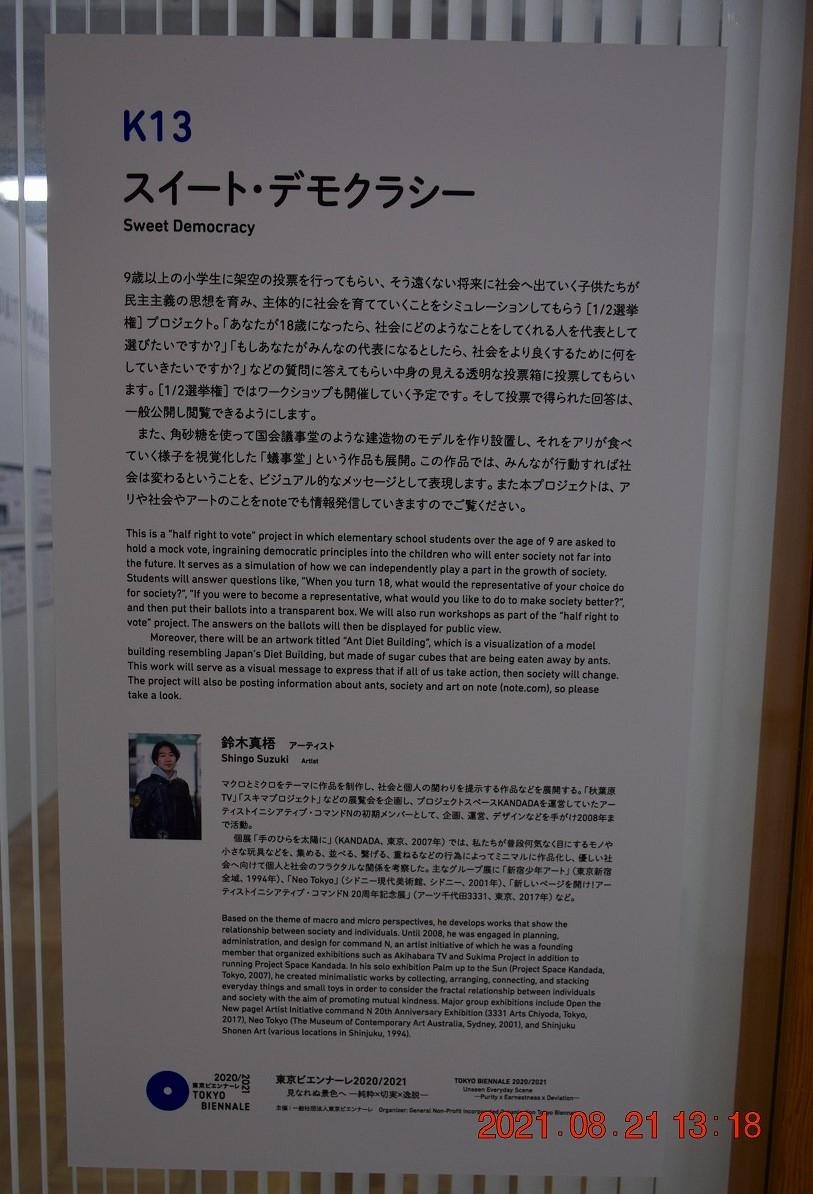 K13
スイート・デモクラシー
Sweet Democracy
9歳以上の小学生に架空の投票を行ってもらい、そう遠くない将来に社会へ出ていく子供たちが
民主主義の思想を育み、主体的に社会を育てていくことをシミュレーションしてもらう［1/2選挙
権］プロジェクト。「あなたが18歳になったら、社会にどのようなことをしてくれる人を代表として
選びたいですか？」「もしあなたがみんなの代表になるとしたら、社会をより良くするために何を
していきたいですか？」などの質問に答えてもらい中身の見える透明な投票箱に投票してもらい
ます。［1/2選挙権］ではワークショップも開催していく予定です。そして投票で得られた回答は、
一般公開し閲覧できるようにします。
また、角砂糖を使って国会議事堂のような建造物のモデルを作り設置し、それをアリが食べ
ていく様子を視覚化した「蟻事堂」という作品も展開。この作品では、みんなが行動すれば社
会は変わるということを、ビジュアル的なメッセージとして表現します。また本プロジェクトは、ア
リや社会やアートのことをnoteでも情報発信していきますのでご覧ください。
This is a "half right to vote" project in which elementary school students over the age of 9 are asked to
hold a mock vote, ingraining democratic principles into the children who will enter society not far into
the future. It serves as a simulation of how we can independently play a part in the growth of society.
Students will answer questions like, "When you turn 18, what would the representative of your choice do
for society?", "If you were to become a representative, what would you like to do to make society better?",
and then put their ballots into a transparent box. We will also run workshops as part of the "half right to
vote" project. The answers on the ballots will then be displayed for public view.
Moreover, there will be an artwork titled "Ant Diet Building", which is a visualization of a model
building resembling Japan's Diet Building, but made of sugar cubes that are being eaten away by ants.
This work will serve as a visual message to express that if all of us take action, then society will change.
The project will also be posting information about ants, society and art on note (note.com), so please
take a look.
鈴木真梧 アーティスト
Shingo Suzuki Artist
マクロとミクロをテーマに作品を制作し、社会と個人の関わりを提示する作品などを展開する。「秋葉原
TV」「スキマプロジェクト」などの展覧会を企画し、プロジェクトスペースKANDADAを運営していたアー
ティストイニシアティブ・コマンドNの初期メンバーとして、企画、運営、デザインなどを手がけ2008年ま
で活動。
個展「手のひらを太陽に」（KANDADA、東京、2007年）では、私たちが普段何気なく目にするモノや
小さな玩具などを、集める、並べる、繋げる、重ねるなどの行為によってミニマルに作品化し、優しい社
会へ向けて個人と社会のフラクタルな関係を考察した。主なグループ展に「新宿少年アート」（東京新宿
全域、1994年）、「Neo Tokyo」（シドニー現代美術館、シドニー、2001年）、「新しいページを開け！アー
ティストイニシアティブ・コマンドN 20周年記念展」（アーツ千代田3331、東京、2017年）など。
Based on the theme of macro and micro perspectives, he develops works that show the
relationship between society and individuals. Until 2008, he was engaged in planning,
administration, and design for command N, an artist initiative of which he was a founding
member that organized exhibitions such as Akihabara TV and Sukima Project in addition to
running Project Space Kandada. In his solo exhibition Palm up to the Sun (Project Space Kandada,
Tokyo, 2007), he created minimalistic works by collecting, arranging, connecting, and stacking
everyday things and small toys in order to consider the fractal relationship between individuals
and society with the aim of promoting mutual kindness. Major group exhibitions include Open the
New page! Artist Initiative command N 20th Anniversary Exhibition (3331 Arts Chiyoda, Tokyo,
2017), Neo Tokyo (The Museum of Contemporary Art Australia, Sydney, 2001), and Shinjuku
Shonen Art (various locations in Shinjuku, 1994).
2020/2021
東京ビエンナーレ
TOKYO
BIENNALE
東京ビエンナーレ2020/2021
見なれぬ景色へ ―純粋×切実×逸脱―
主催：一般社団法人東京ビエンナーレ Organizer: General Non-Profit Incorporated Organization Tokyo Biennale
TOKYO BIENNALE 2020/2021
Unseen Everyday Scene
―Purity x Earnestness x Deviation―
2021.08.21 13:18